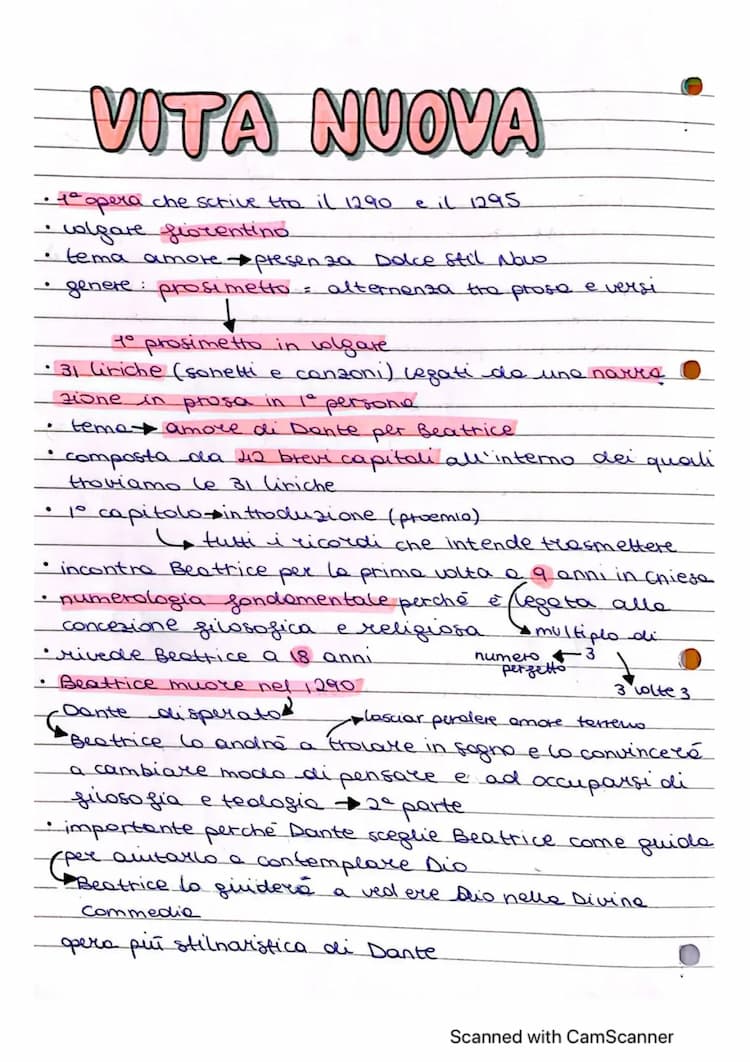 VITA NUOVA
• 1ª opera che scrive tra il 1290 e il 1295
• volgare fiorentino
• tema amore → presenza Dolce Stil Novo
• genere: prosimetto = alternanza tra prosa e versi
1° prosimetto in volgare
• 31 liriche (sonetti e canzoni) legati da una narra
zione in prosa in 1ª persona
• tema → amore di Dante per Beatrice
• composta da 42 brevi capitoli all'interno dei quali
troviamo le 31 liriche
• 1° capitolo → introduzione (proemio)
tutti i ricordi che intende trasmettere
• incontra Beatrice per la prima volta a 9 anni in chiesa
• numerologia fondamentale perché è legata alla
concezione filosofica e religiosa
multiplo di
• rivede Beatrice a 18 anni
numero perfetto ← 3
3 volte 3
• Beatrice muore nel 1290
Dante disperato
lasciar perdere amore terreno
Beatrice lo andrà a trovare in sogno e lo convincerà
a cambiare modo di pensare e ad occuparsi di
filosofia e teologia → 2ª parte
• importante perché Dante sceglie Beatrice come guida
per aiutarlo a contemplare Dio
Beatrice lo guiderà a vedere Dio nella Divina
Commedia
opera più stilnaristica di Dante
Scanned with CamScanner